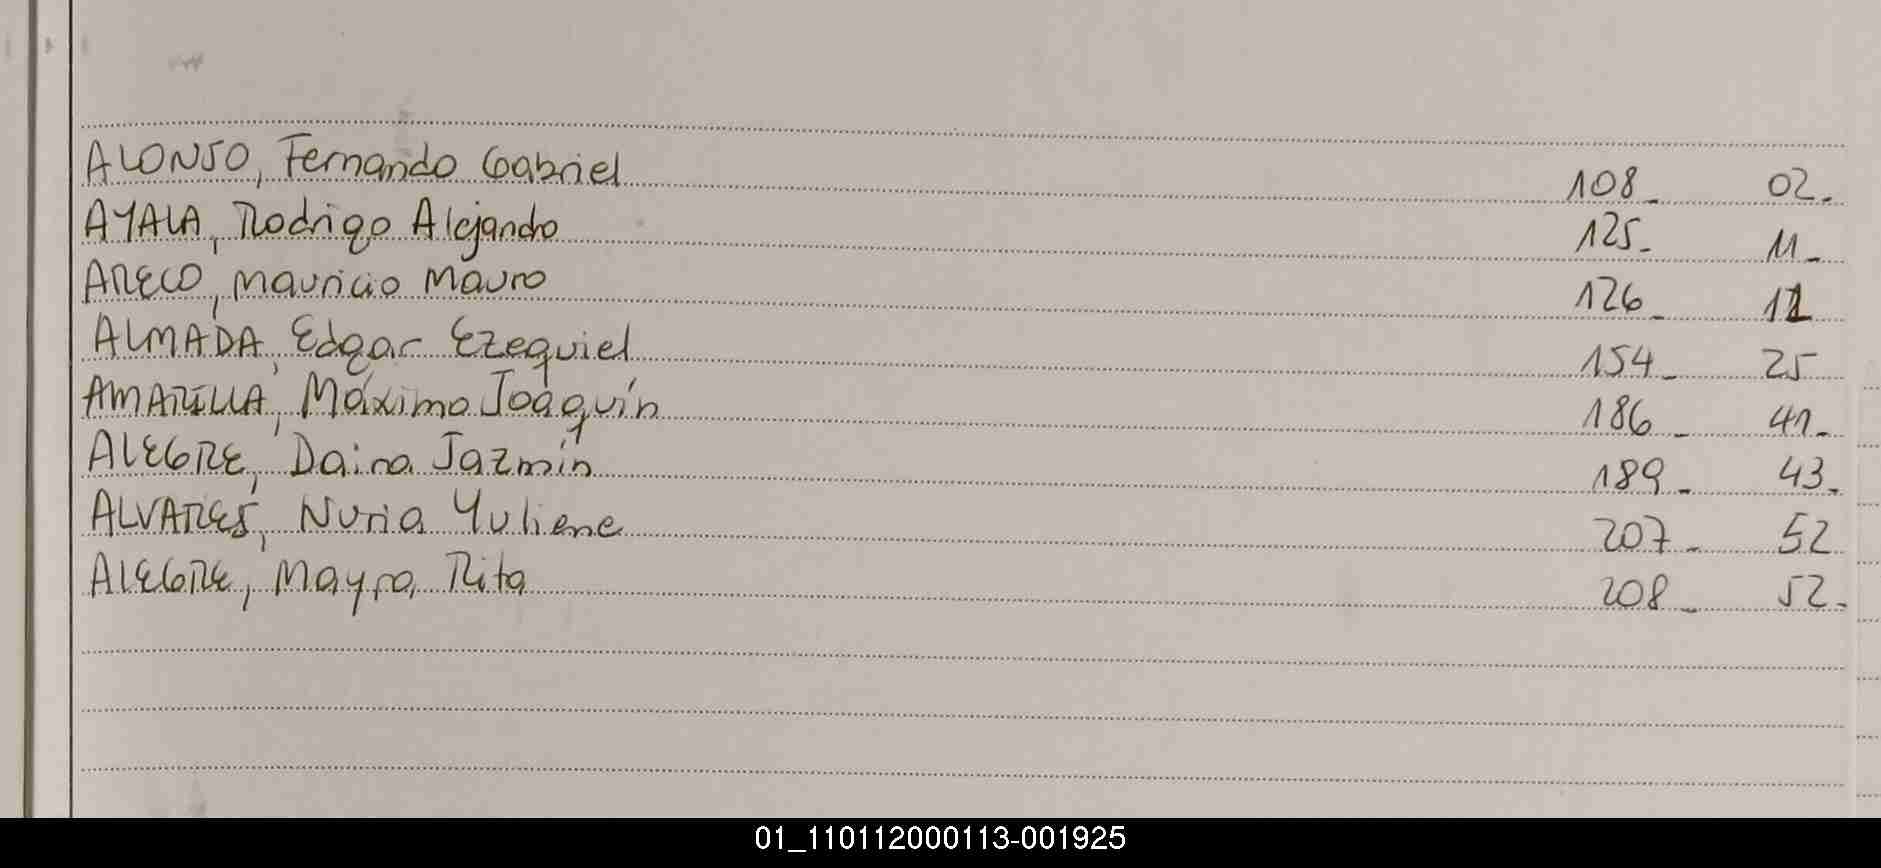 ALONSO, Fernando Gabriel 108_ 02_
AYALA, Rodrigo Alejandro 125_ 11_
ARECO, Mauricio Mauro 126_ 11
ALMADA, Edgar Ezequiel 154_ 25
AMARILLA, Máximo Joaquín 186_ 41_
ALEGRE, Daina Jazmín 189_ 43_
ALVARES, Nuria Yuliene 207_ 52
ALEGRE, Mayra, Rita 208_ 52_
01_110112000113-001925